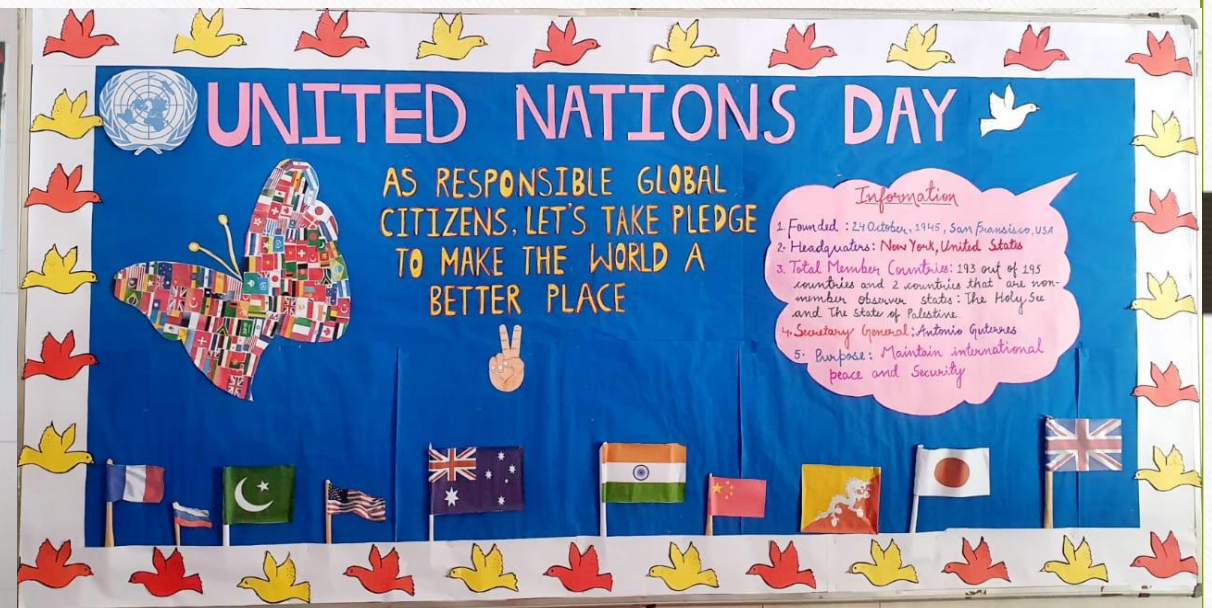 UNITED NATIONS DAY
AS RESPONSIBLE GLOBAL
CITIZENS, LET'S TAKE PLEDGE
TO MAKE THE WORLD A
BETTER PLACE
Information
1. Founded : 24 October, 1945, San Fransisco, USA
2. Headquaters: New York, United States
3. Total Member Countries: 193 out of 195
countries and 2 countries that are non-
member observer states : The Holy See
and The State of Palestine
4. Secretary General : Antonio Guterres
5. Purpose : Maintain international
peace and Security